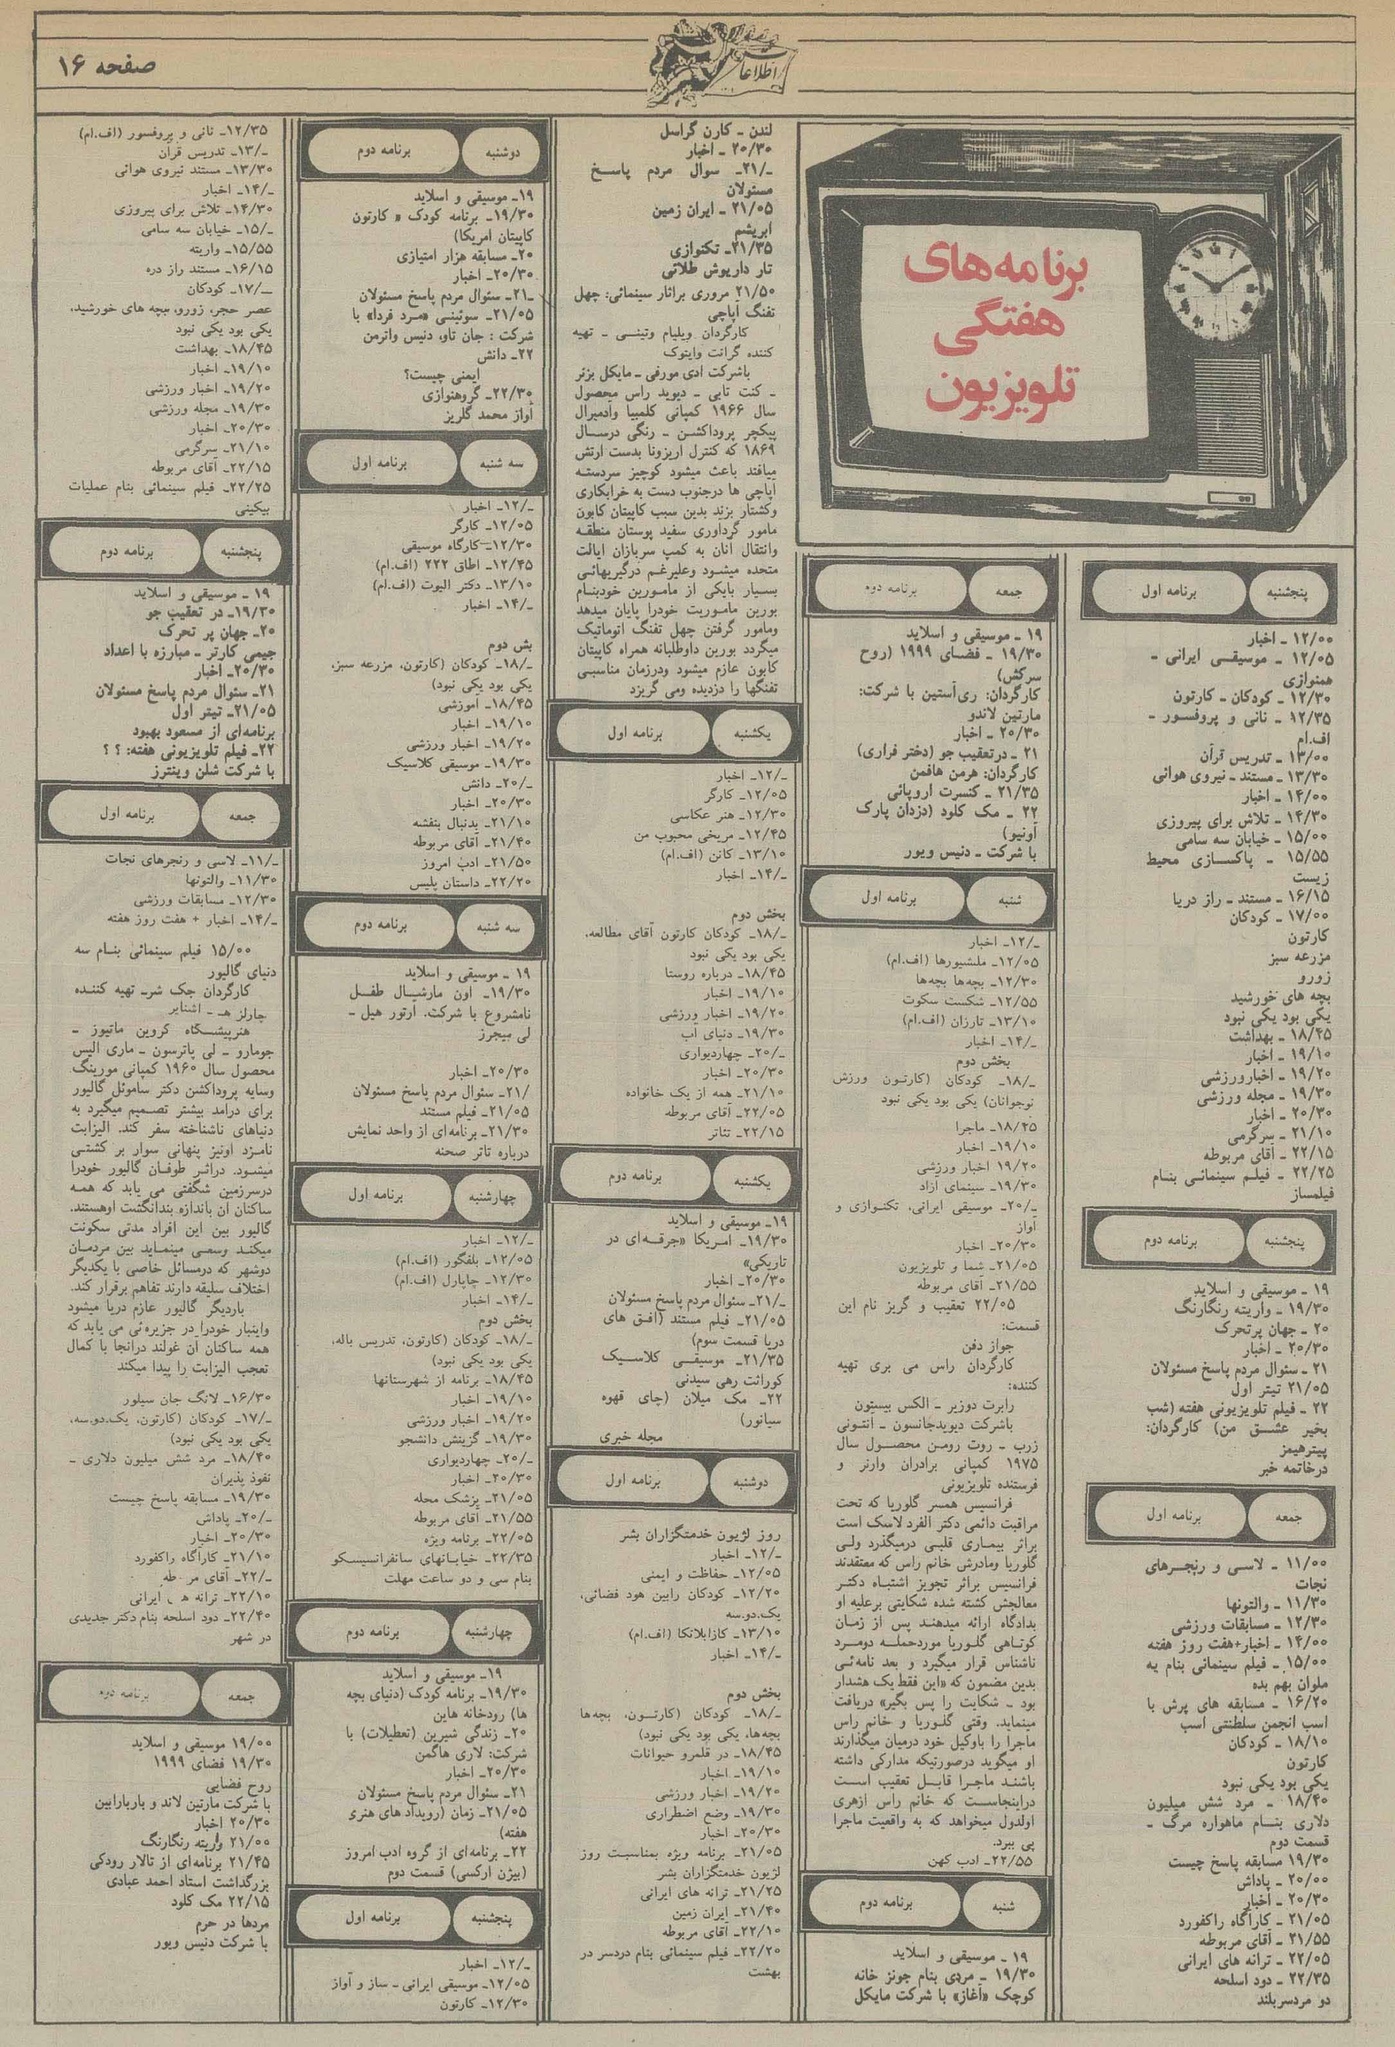 صفحه ۱۶
اطلاعات
برنامه‌های
هفتگی
تلویزیون
پنجشنبه
برنامه اول
۱۲/۰۰ - اخبار
۱۲/۰۵ - موسیقی ایرانی -
همنوازی
۱۲/۳۰ - کودکان - کارتون
۱۲/۳۵ - نانی و پروفسور -
اف.ام
۱۳/۰۰ - تدریس قرآن
۱۳/۳۰ - مستند - نیروی هوائی
۱۴/۰۰ - اخبار
۱۴/۳۰ - تلاش برای پیروزی
۱۵/۰۰ - خیابان سه سامی
۱۵/۵۵ - پاکسازی محیط
زیست
۱۶/۱۵ - مستند - راز دریا
۱۷/۰۰ - کودکان
کارتون
مزرعه سبز
زورو
بچه های خورشید
یکی بود یکی نبود
۱۸/۴۵ - بهداشت
۱۹/۱۰ - اخبار
۱۹/۲۰ - اخبارورزشی
۱۹/۳۰ - مجله ورزشی
۲۰/۳۰ - اخبار
۲۱/۱۰ - سرگرمی
۲۲/۱۵ - آقای مربوطه
۲۲/۲۵ - فیلم سینمائی بنام
فیلمساز
پنجشنبه
برنامه دوم
۱۹ - موسیقی و اسلاید
۱۹/۳۰ - واریته رنگارنگ
۲۰ - جهان پرتحرک
۲۰/۳۰ - اخبار
۲۱ - سئوال مردم پاسخ مسئولان
۲۱/۰۵ تیتر اول
۲۲ - فیلم تلویزیونی هفته (شب
بخیر عشق من) کارگردان:
پیترهیمز
درخاتمه خبر
جمعه
برنامه اول
۱۱/۰۰ - لاسی و رنجرهای
نجات
۱۱/۳۰ - والتونها
۱۲/۳۰ - مسابقات ورزشی
۱۴/۰۰ - اخبار+هفت روز هفته
۱۵/۰۰ - فیلم سینمائی بنام یه
ملوان بهم بده
۱۶/۲۰ - مسابقه های پرش با
اسب انجمن سلطنتی اسب
۱۸/۱۰ - کودکان
کارتون
یکی بود یکی نبود
۱۸/۴۰ - مرد شش میلیون
دلاری بنام ماهواره مرگ -
قسمت دوم
۱۹/۳۰ مسابقه پاسخ چیست
۲۰/۰۰ - پاداش
۲۰/۳۰ - اخبار
۲۱/۰۵ - کارآگاه راکفورد
۲۱/۵۵ - آقای مربوطه
۲۲/۰۵ - ترانه های ایرانی
۲۲/۳۵ - دود اسلحه
دو مردسربلند
جمعه
برنامه دوم
۱۹ - موسیقی و اسلاید
۱۹/۳۰ - فضای ۱۹۹۹ (روح
سرکش)
کارگردان: ری‌آستین با شرکت:
مارتین لاندو
۲۰/۳۰ - اخبار
۲۱ - درتعقیب جو (دختر فراری)
کارگردان: هرمن هافمن
۲۱/۳۵ - کنسرت اروپائی
۲۲ - مک کلود (دزدان پارک
آونیو)
با شرکت - دنیس ویور
شنبه
برنامه اول
۱۲/- اخبار
۱۲/۰۵- ملشیورها (اف.ام)
۱۲/۳۰- بچه‌ها بچه‌ها
۱۲/۵۵- شکست سکوت
۱۳/۱۰- تارزان (اف.ام)
۱۴/- اخبار
بخش دوم
۱۸/- کودکان (کارتون ورزش
نوجوانان) یکی بود یکی نبود
۱۸/۲۵- ماجرا
۱۹/۱۰- اخبار
۱۹/۲۰ اخبار ورزشی
۱۹/۳۰- سینمای آزاد
۲۰/- موسیقی ایرانی، تکنوازی و
آواز
۲۰/۳۰- اخبار
۲۱/۰۵- شما و تلویزیون
۲۱/۵۵- آقای مربوطه
۲۲/۰۵ تعقیب و گریز نام این
قسمت:
جواز دفن
کارگردان راس می بری تهیه
کننده:
رابرت دوزیر - الکس بیستون
باشرکت دیویدجانسون - آنتونی
زرب - روت رومن محصول سال
۱۹۷۵ کمپانی برادران وارنر و
فرستنده تلویزیونی
فرانسیس همسر گلوریا که تحت
مراقبت دائمی دکتر الفرد لاسک است
براثر بیماری قلبی درمیگذرد ولی
گلوریا ومادرش خانم راس که معتقدند
فرانسیس براثر تجویز اشتباه دکتر
معالجش کشته شده شکایتی برعلیه او
بدادگاه ارائه میدهند پس از زمان
کوتاهی گلوریا موردحمله دومرد
ناشناس قرار میگیرد و بعد نامه‌ئی
بدین مضمون که «این فقط یک هشدار
بود - شکایت را پس بگیر» دریافت
مینماید. وقتی گلوریا و خانم راس
ماجرا را باوکیل خود درمیان میگذارند
او میگوید درصورتیکه مدارکی داشته
باشند ماجرا قابل تعقیب است
دراینجاست که خانم راس ازهری
اولدول میخواهد که به واقعیت ماجرا
پی ببرد.
۲۲/۵۵- ادب کهن
شنبه
برنامه دوم
۱۹ - موسیقی و اسلاید
۱۹/۳۰ - مردی بنام جونز خانه
کوچک «آغاز» با شرکت مایکل
لندن - کارن گراسل
۲۰/۳۰ - اخبار
۲۱/- سوال مردم پاسخ
مسئولان
۲۱/۰۵ - ایران زمین
ابریشم
۲۱/۳۵- تکنوازی
تار داریوش طلائی
۲۱/۵۰ مروری برآثار سینمائی: چهل
تفنگ آپاچی
کارگردان ویلیام وتینی - تهیه
کننده گرانت وایتوک
باشرکت ادی مورفی - مایکل بزنر
- کنت تابی - دیوید راس محصول
سال ۱۹۶۶ کمپانی کلمبیا وآدمیرال
پیکچر پروداکشن - رنگی درسال
۱۸۶۹ که کنترل اریزونا بدست ارتش
میافتد باعث میشود کوچیز سردسته
آپاچی ها درجنوب دست به خرابکاری
وکشتار بزند بدین سبب کاپیتان کابون
مامور گردآوری سفید پوستان منطقه
وانتقال آنان به کمپ سربازان ایالت
متحده میشود وعلیرغم درگیریهائی
بسیار بایکی از مامورین خودبنام
بورین ماموریت خودرا پایان میدهد
ومامور گرفتن چهل تفنگ اتوماتیک
میگردد بورین داوطلبانه همراه کاپیتان
کابون عازم میشود ودرزمان مناسبی
تفنگها را دزدیده ومی گریزد
یکشنبه
برنامه اول
۱۲/- اخبار
۱۲/۰۵- کارگر
۱۲/۳۰- هنر عکاسی
۱۲/۴۵- مریخی محبوب من
۱۳/۱۰- کانن (اف.ام)
۱۴/- اخبار
بخش دوم
۱۸/- کودکان کارتون آقای مطالعه،
یکی بود یکی نبود
۱۸/۴۵- درباره روستا
۱۹/۱۰- اخبار
۱۹/۲۰- اخبار ورزشی
۱۹/۳۰- دنیای آب
۲۰/- چهاردیواری
۲۰/۳۰- اخبار
۲۱/۱۰- همه از یک خانواده
۲۲/۰۵- آقای مربوطه
۲۲/۱۵- تئاتر
یکشنبه
برنامه دوم
۱۹- موسیقی و اسلاید
۱۹/۳۰- امریکا «جرقه‌ای در
تاریکی»
۲۰/۳۰- اخبار
۲۱/- سئوال مردم پاسخ مسئولان
۲۱/۰۵- فیلم مستند (افق های
دریا قسمت سوم)
۲۱/۳۵- موسیقی کلاسیک
کوراثت رهی سیدنی
۲۲- مک میلان (جای قهوه
سیانور)
مجله خبری
دوشنبه
برنامه اول
روز لژیون خدمتگزاران بشر
۱۲/- اخبار
۱۲/۰۵- حفاظت و ایمنی
۱۲/۲۰- کودکان رابین هود فضائی،
یک.دو.سه
۱۳/۱۰- کازابلانکا (اف.ام)
۱۴/- اخبار
بخش دوم
۱۸/- کودکان (کارتون، بچه‌ها
بچه‌ها، یکی بود یکی نبود)
۱۸/۴۵- در قلمرو حیوانات
۱۹/۱۰- اخبار
۱۹/۲۰- اخبار ورزشی
۱۹/۳۰- وضع اضطراری
۲۰/۳۰- اخبار
۲۱/۰۵- برنامه ویژه بمناسبت روز
لژیون خدمتگزاران بشر
۲۱/۲۵- ترانه های ایرانی
۲۱/۴۰- ایران زمین
۲۲/۱۰- آقای مربوطه
۲۲/۲۰- فیلم سینمائی بنام دردسر در
بهشت
دوشنبه
برنامه دوم
۱۹- موسیقی و اسلاید
۱۹/۳۰- برنامه کودک « کارتون
کاپیتان امریکا)
۲۰- مسابقه هزار امتیازی
۲۰/۳۰- اخبار
۲۱- سئوال مردم پاسخ مسئولان
۲۱/۰۵- سوئینی «مرد فردا» با
شرکت : جان تاو، دنیس واترمن
۲۲- دانش
ایمنی چیست؟
۲۲/۳۰- گروهنوازی
آواز محمد گلریز
سه شنبه
برنامه اول
۱۲/- اخبار
۱۲/۰۵- کارگر
۱۲/۳۰- کارگاه موسیقی
۱۲/۴۵- اطاق ۲۲۲ (اف.ام)
۱۳/۱۰- دکتر الیوت (اف.ام)
۱۴/- اخبار
بش دوم
۱۸/- کودکان (کارتون، مزرعه سبز،
یکی بود یکی نبود)
۱۸/۴۵- آموزشی
۱۹/۱۰- اخبار
۱۹/۲۰- اخبار ورزشی
۱۹/۳۰- موسیقی کلاسیک
۲۰/- دانش
۲۰/۳۰- اخبار
۲۱/۱۰- بدنبال بنفشه
۲۱/۴۰- آقای مربوطه
۲۱/۵۰- ادب امروز
۲۲/۲۰- داستان پلیس
سه شنبه
برنامه دوم
۱۹ - موسیقی و اسلاید
۱۹/۳۰- اون مارشال طفل
نامشروع با شرکت. آرتور هیل-
لی میجرز
۲۰/۳۰- اخبار
۲۱/- سئوال مردم پاسخ مسئولان
۲۱/۰۵- فیلم مستند
۲۱/۳۰- برنامه‌ای از واحد نمایش
درباره تاتر صحنه
چهارشنبه
برنامه اول
۱۲/- اخبار
۱۲/۰۵- بلفگور (اف.ام)
۱۲/۳۰- چاپارل (اف.ام)
۱۴/- اخبار
بخش دوم
۱۸/- کودکان (کارتون، تدریس باله،
یکی بود یکی نبود)
۱۸/۴۵- برنامه از شهرستانها
۱۹/۱۰- اخبار
۱۹/۲۰- اخبار ورزشی
۱۹/۳۰- گزینش دانشجو
۲۰/- چهاردیواری
۲۰/۳۰- اخبار
۲۱/۰۵- پزشک محله
۲۱/۵۵- آقای مربوطه
۲۲/۰۵- برنامه ویژه
۲۲/۳۵- خیابانهای سانفرانسیسکو
بنام سی و دو ساعت مهلت
چهارشنبه
برنامه دوم
۱۹- موسیقی و اسلاید
۱۹/۳۰- برنامه کودک (دنیای بچه
ها) رودخانه هاین
۲۰- زندگی شیرین (تعطیلات) با
شرکت: لاری هاگمن
۲۰/۳۰- اخبار
۲۱- سئوال مردم پاسخ مسئولان
۲۱/۰۵- زمان (رویداد های هنری
هفته)
۲۲- برنامه‌ای از گروه ادب امروز
(بیژن ارکسی) قسمت دوم
پنجشنبه
برنامه اول
۱۲/- اخبار
۱۲/۰۵- موسیقی ایرانی - ساز و آواز
۱۲/۳۰- کارتون
۱۲/۳۵- نانی و پروفسور (اف.ام)
۱۳/- تدریس قرآن
۱۳/۳۰- مستند نیروی هوائی
۱۴/- اخبار
۱۴/۳۰- تلاش برای پیروزی
۱۵/- خیابان سه سامی
۱۵/۵۵- واریته
۱۶/۱۵- مستند راز دره
۱۷/- کودکان
عصر حجر، زورو، بچه های خورشید،
یکی بود یکی نبود
۱۸/۴۵- بهداشت
۱۹/۱۰- اخبار
۱۹/۲۰- اخبار ورزشی
۱۹/۳۰- مجله ورزشی
۲۰/۳۰- اخبار
۲۱/۱۰- سرگرمی
۲۲/۱۵- آقای مربوطه
۲۲/۲۵- فیلم سینمائی بنام عملیات
بیکینی
پنجشنبه
برنامه دوم
۱۹ - موسیقی و اسلاید
۱۹/۳۰- در تعقیب جو
۲۰- جهان پر تحرک
جیمی کارتر - مبارزه با اعداد
۲۰/۳۰- اخبار
۲۱- سئوال مردم پاسخ مسئولان
۲۱/۰۵- تیتر اول
برنامه‌ای از مسعود بهبود
۲۲- فیلم تلویزیونی هفته: ؟ ؟
با شرکت شلن وینترز
جمعه
برنامه اول
۱۱/- لاسی و رنجرهای نجات
۱۱/۳۰- والتونها
۱۲/۳۰- مسابقات ورزشی
۱۴/- اخبار + هفت روز هفته
۱۵/۰۰ فیلم سینمائی بنام سه
دنیای گالیور
کارگردان جک شر- تهیه کننده
چارلز هـ - اشنایر
هنرپیشگاه کروین ماتیوز -
جومارو - لی پاترسون - ماری الیس
محصول سال ۱۹۶۰ کمپانی مورینگ
وسایه پروداکشن دکتر ساموئل گالیور
برای درآمد بیشتر تصمیم میگیرد به
دنیاهای ناشناخته سفر کند. الیزابت
نامزد اونیز پنهانی سوار بر کشتی
میشود. دراثر طوفان گالیور خودرا
درسرزمین شگفتی می یابد که همه
ساکنان آن باندازه بندانگشت اوهستند.
گالیور بین این افراد مدتی سکونت
میکند وسعی مینماید بین مردمان
دوشهر که درمسائل خاصی با یکدیگر
اختلاف سلیقه دارند تفاهم برقرار کند.
باردیگر گالیور عازم دریا میشود
واینبار خودرا در جزیره‌ئی می یابد که
همه ساکنان آن غولند درآنجا با کمال
تعجب الیزابت را پیدا میکند
۱۶/۳۰- لانگ جان سیلور
۱۷/- کودکان (کارتون، یک.دو.سه،
یکی بود یکی نبود)
۱۸/۴۰- مرد شش میلیون دلاری -
نفوذ پذیران
۱۹/۳۰- مسابقه پاسخ چیست
۲۰/- پاداش
۲۰/۳۰- اخبار
۲۱/۱۰- کارآگاه راکفورد
۲۲/- آقای مر طه
۲۲/۱۰- ترانه ه ایرانی
۲۲/۴۰- دود اسلحه بنام دکتر جدیدی
در شهر
جمعه
برنامه دوم
۱۹/۰۰ موسیقی و اسلاید
۱۹/۳۰ فضای ۱۹۹۹
روح فضایی
با شرکت مارتین لاند و باربارابین
۲۰/۳۰ اخبار
۲۱/۰۰ واریته رنگارنگ
۲۱/۴۵ برنامه‌ای از تالار رودکی
بزرگداشت استاد احمد عبادی
۲۲/۱۵ مک کلود
مردها در حرم
با شرکت دنیس ویور